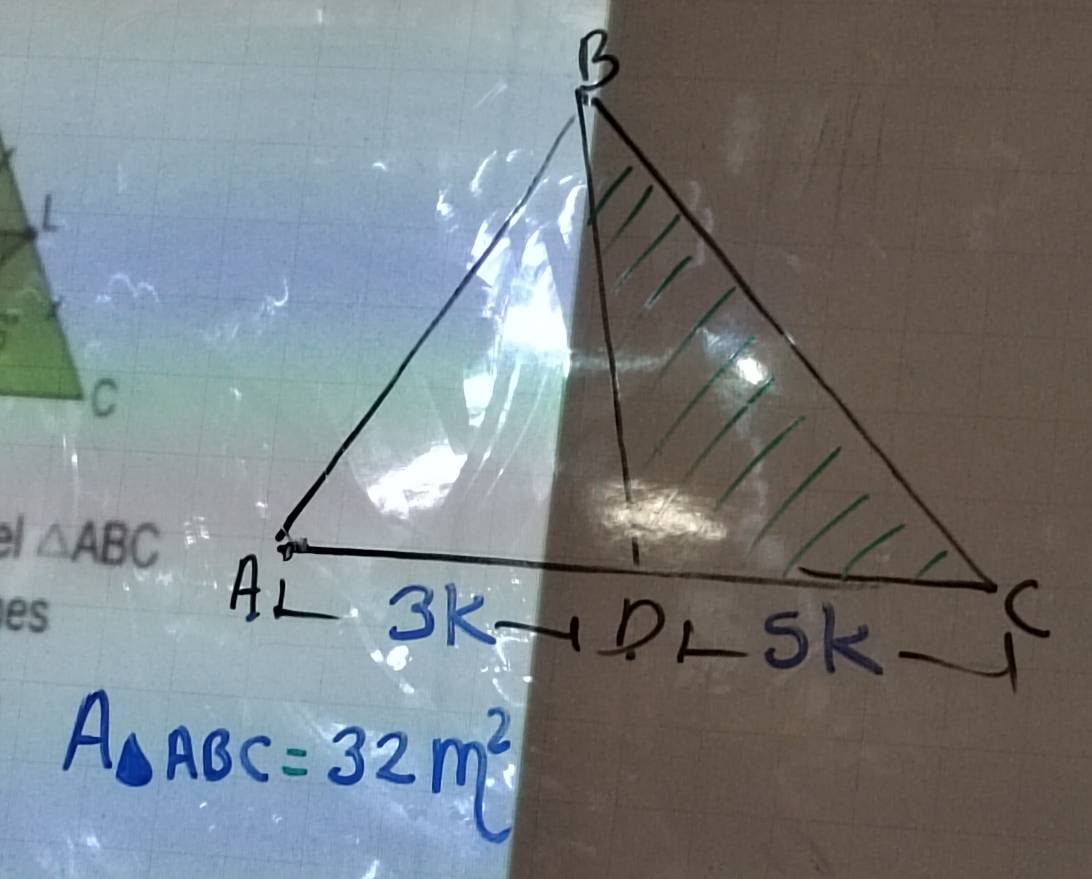 B
L
C
el △ABC
es
A 3k D 5k C
A△ABC = 32 m²